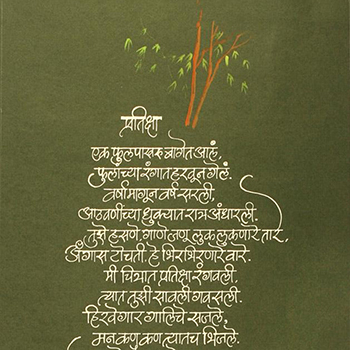 प्रतिक्षा
एक फुलपाखरू बागेत आहे,
फुलांच्या रंगात हरवून गेलं.
वर्षामागून वर्ष सरली,
आठवणींच्या धुक्यात रात्र अंधारली.
तुझे हसणे, गाणे जणू लुकलुकणारे तारे,
अंगास टोचती हे भिरभिरणारे वारे.
मी चित्रात प्रतिक्षा रंगवली.
त्यात तुझी सावली गवसली.
हिरवेगार गालिचे सजले,
मन कणु कण त्यातच भिजले.